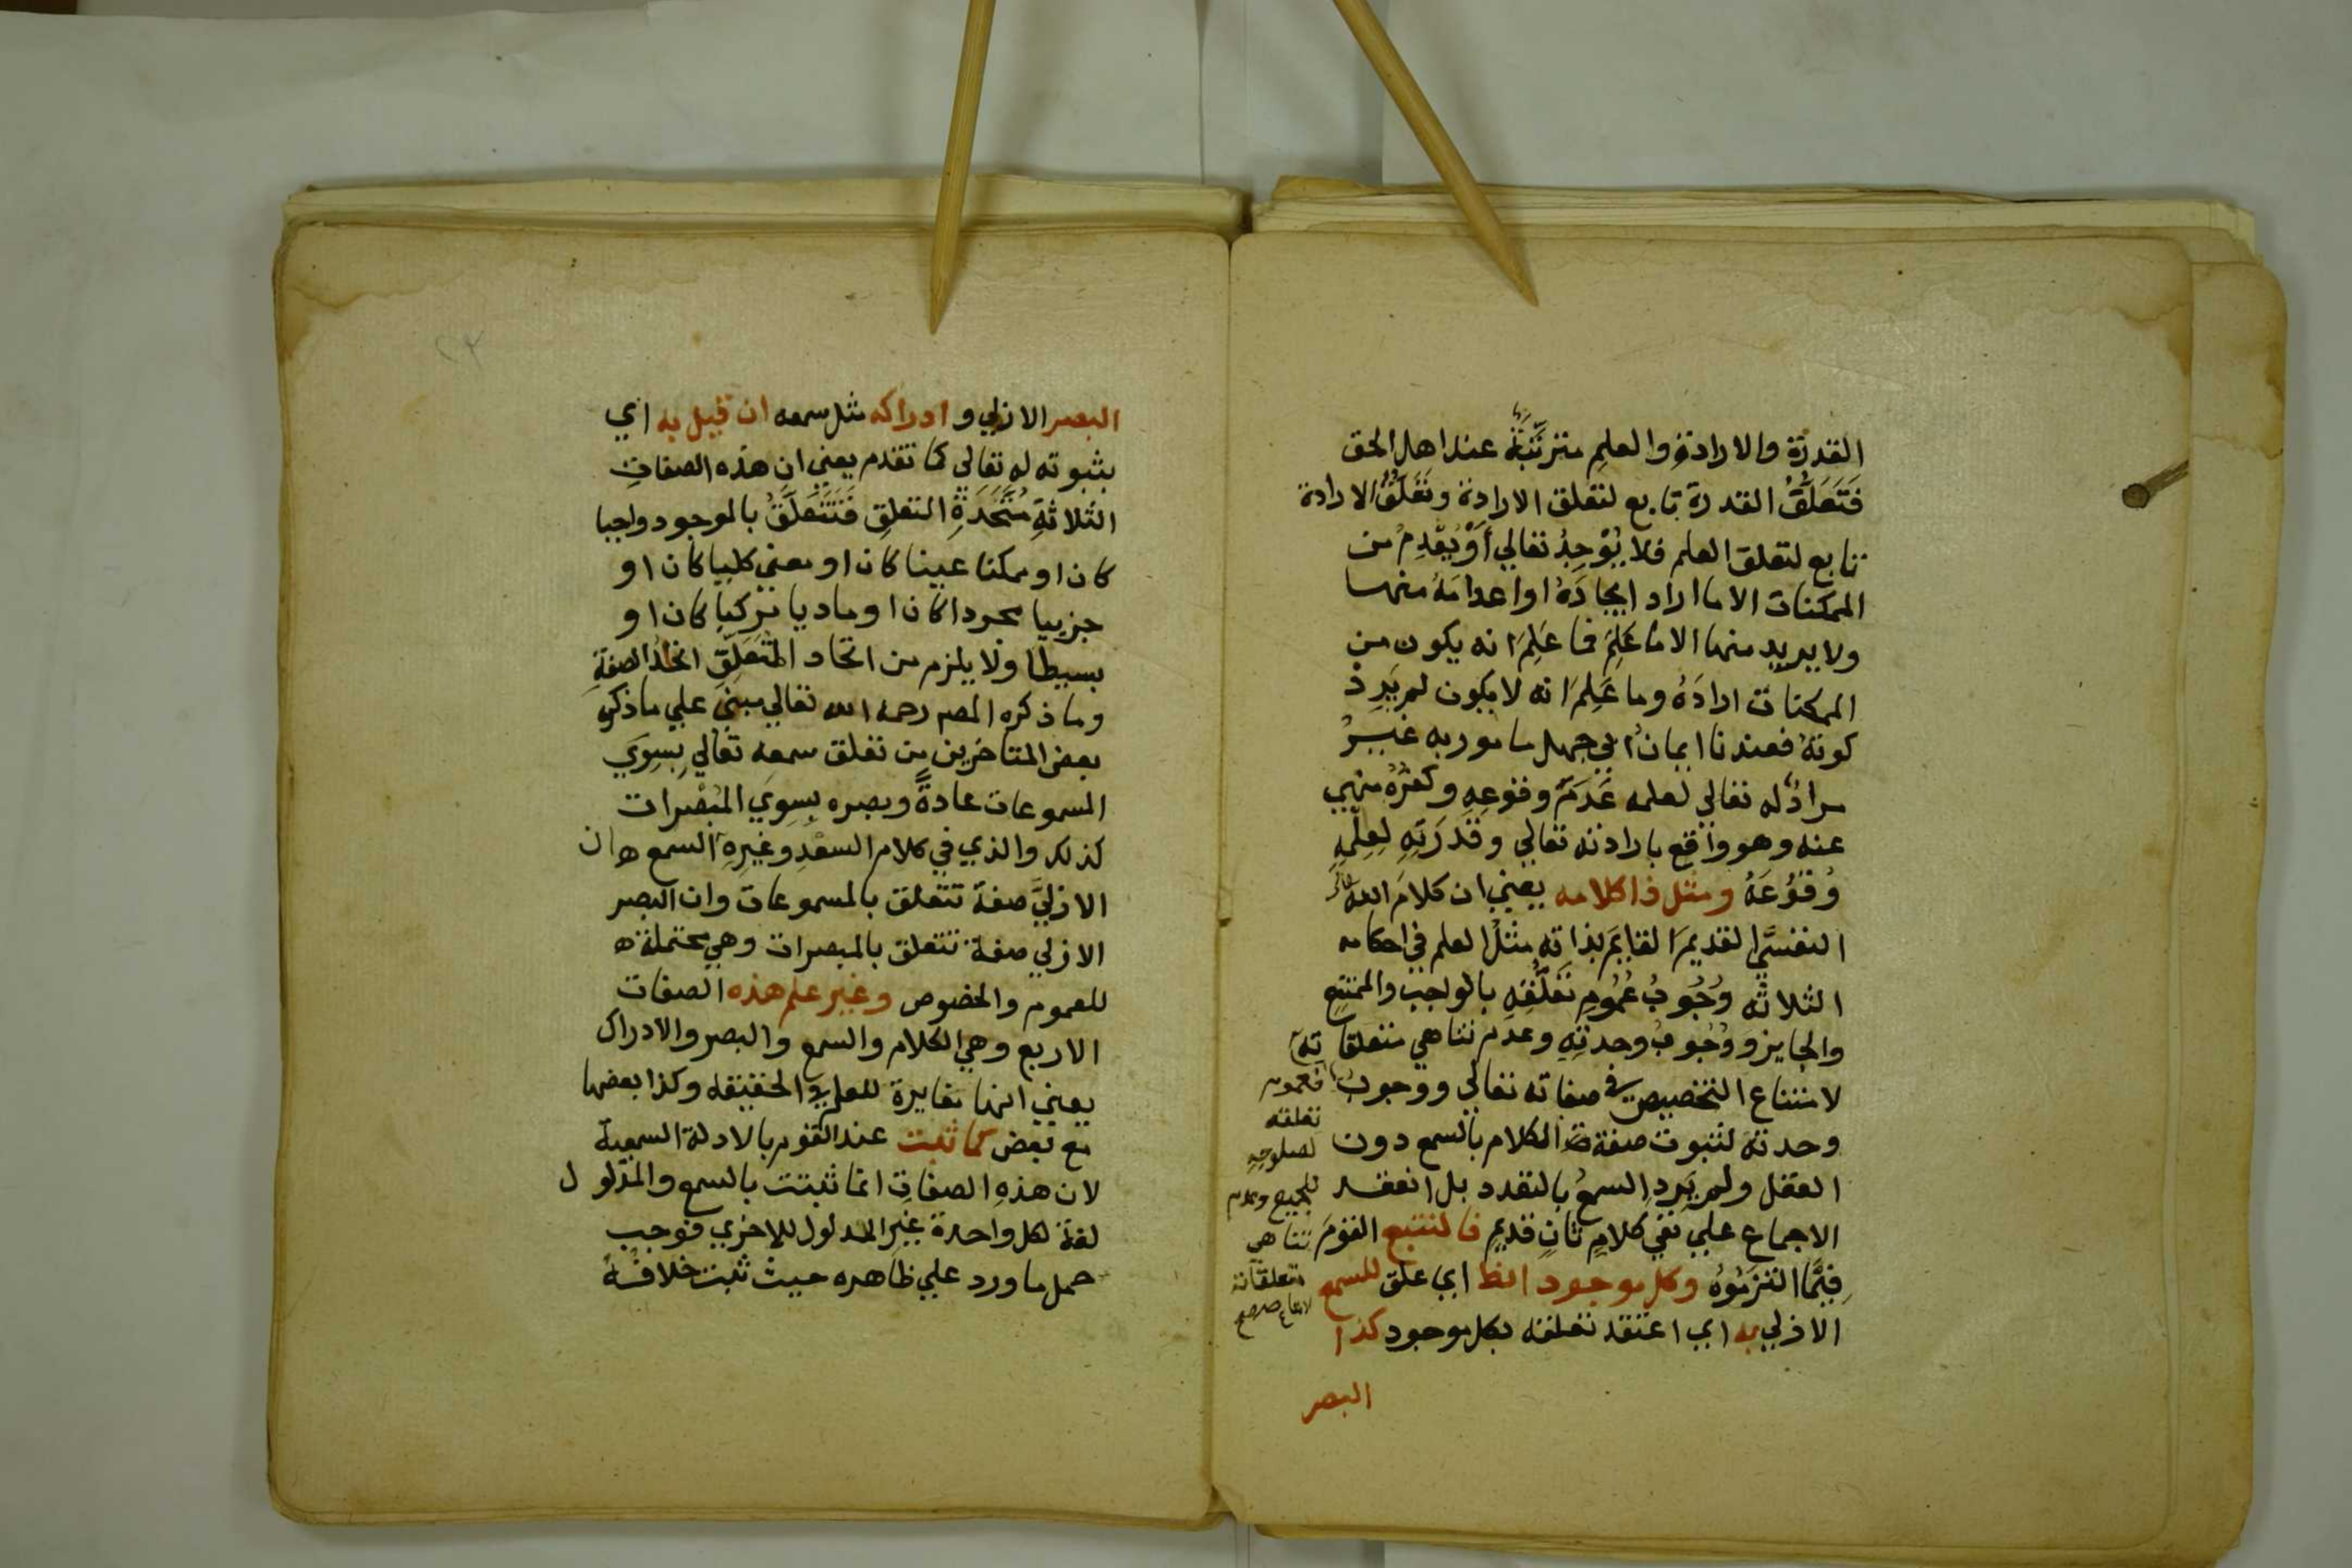 القدرة والارادة والعلم مترتبة عند اهل الحق
فَتَعَلُّقُ القدرة تابع لتعلق الارادة وتَعَلُّقُ الارادة
تابع لتعلق العلم فلا يُوْجِدُ تعالي أَوْ يُعْدِمُ من
الممكنات الا ما اراد ايجادَهُ او اعدامَهُ منها
ولا يريد منها الا ما عَلِمَ فما عَلِمَ انه يكون من
الممكنات ارادَهُ وما عَلِمَ انه لا يكون لم يَرِدْ
كونَهُ فعندنا ايمانُ ابي جهل مامور به غَيْرُ
مرادٍ له تعالي لعلمه عَدَمَ وقوعِهِ وكفرُهُ منهي
عنه وهو واقع بارادته تعالي وقُدْرَتِهِ لِعِلْمِهِ
وُقُوْعَهُ ومثل ذا كلامه يعني ان كلامَ الله
النفسيَّ القديمَ القايمَ بذاته مثلُ العلم في احكامه
الثلاثه وُجُوبُ عُمُومِ تَعَلُّقِهِ بالواجب والممتنع
والجايز ووُجُوبُ وحدتِهِ وعدم تناهي متعلقاته
لامتناع التخصيص في صفاته تعالي ووجوب
وحدته لثبوت صفة الكلام بالسمع دون
العقل ولم يَرِدِ السمعُ بالتعدد بل انعقد
الاجماع علي نفي كلامٍ ثانٍ قديمٍ فالنتبع القومَ
فِيْمَا التزمُوْهُ وكل موجود انط اي علق للسمع
الازلي به اي اعتقد تعلقه بكل موجود كذا
البصر
فعموم
تعلقه
لصلوحِهِ
للجميع وعدم
تناهي
متعلقاته
البصر الازلي وادراكه مثل سمعه ان قيل به اي
بثبوته له تعالي كما تقدم يعني ان هذه الصفاتِ
الثلاثةِ مُتَّحِدَةِ التعلقِ فَتَتَعَلَّقُ بالموجود واجبا
كان او ممكنا عينا كان او معني كليا كان او
جزييا مجردا كان او ماديا مركبا كان او
بسيطا ولا يلزم من اتحاد المتعلقِ اتحادُ الصفةِ
وما ذكره المصم رحمه الله تعالي مبني علي ما ذكره
بعض المتاخرين من تعلق سمعه تعالي بِسِوَي
المسموعات عادةً وبصره بِسِوي المُبْصَرات
كذلك والذي في كلام السعْدِ وغيرِهِ ان السمع
الازليَّ صفة تتعلق بالمسموعات وان البصر
الازلي صفة تتعلق بالمبصرات وهي محتملة
للعموم والخصوص وغير علم هذه الصفات
الاربع وهي الكلام والسمع والبصر والادراك
يعني انها مغايرة للعلم في الحقيقه وكذا بعضها
مع بعض كما ثبت عند القوم بالادلة السمعية
لان هذهِ الصفاتِ انما ثبتت بالسمع والمدلول
لغة لكل واحدة غير المدلول للاخري فوجب
حمل ما ورد علي ظاهره حيث ثبت خلافُهُ